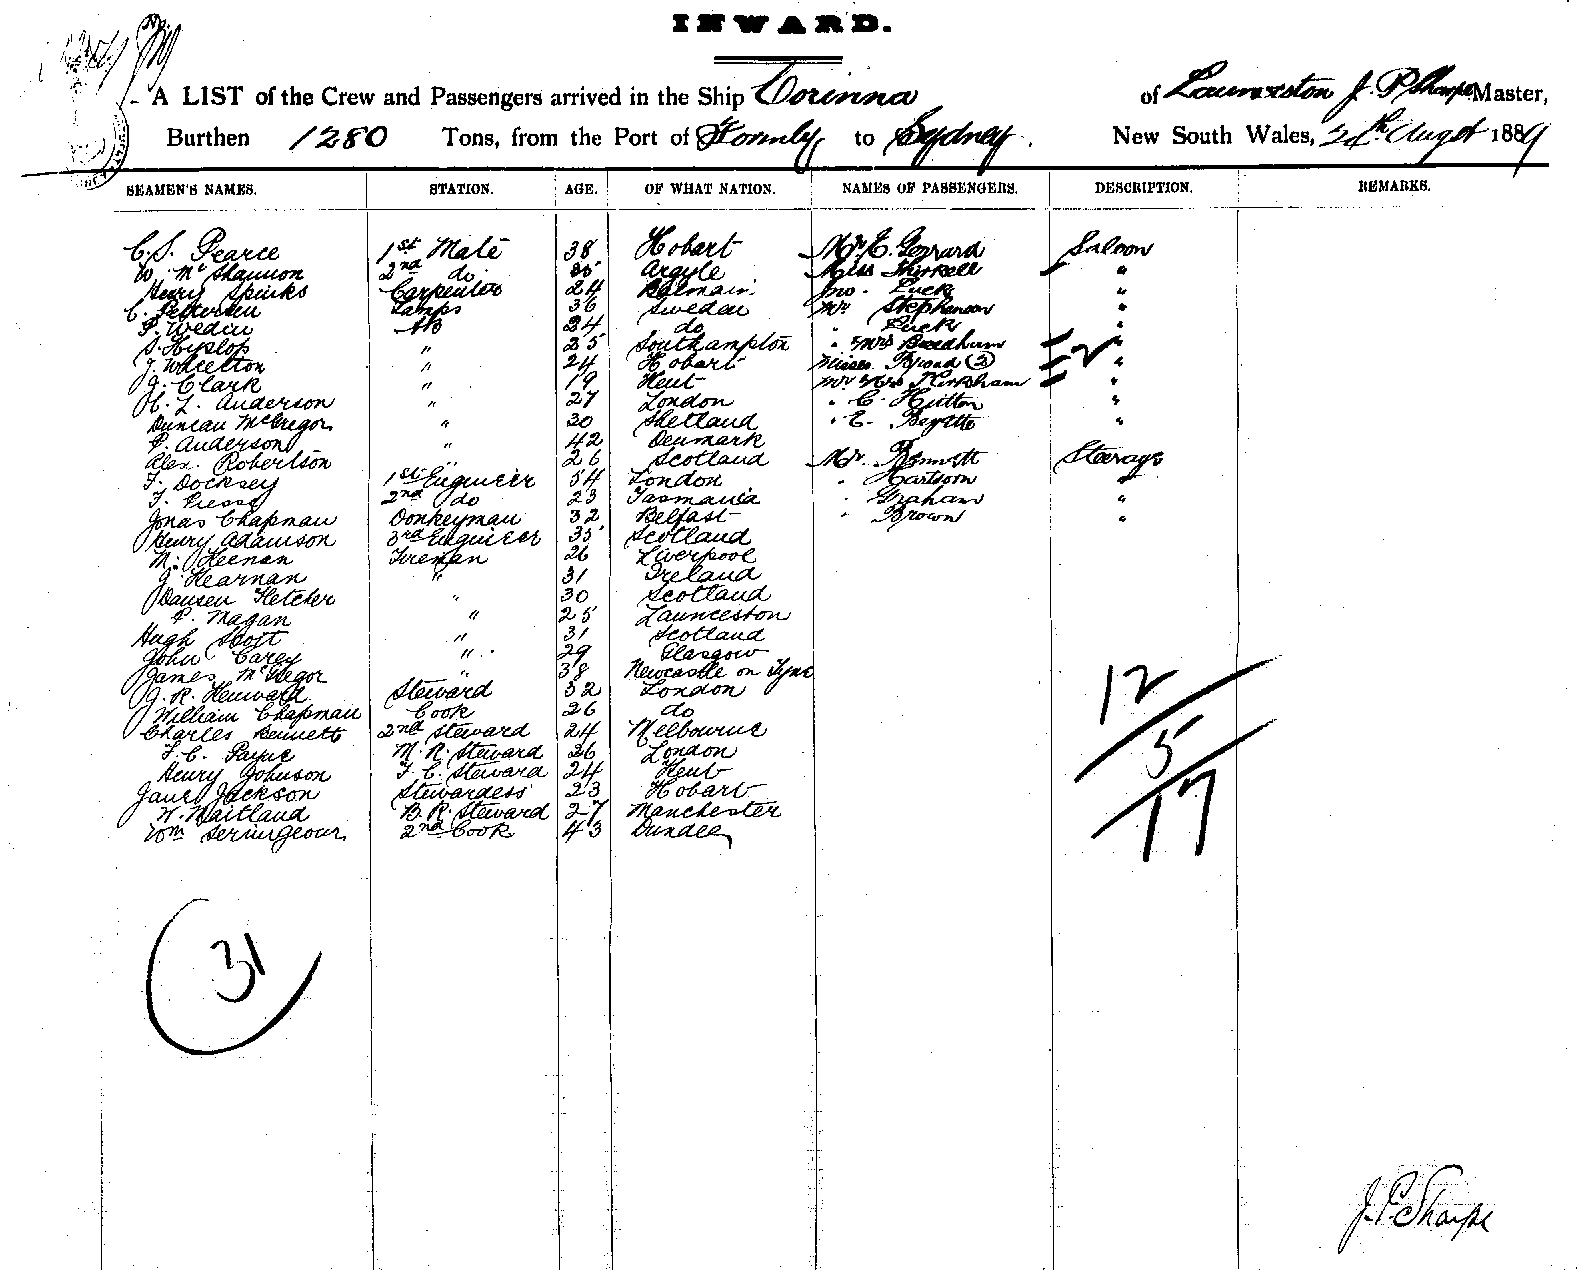 INWARD.
A LIST of the Crew and Passengers arrived in the Ship Corinna of Launceston J. P. Sharpe Master,
Burthen 1280 Tons, from the Port of Formby to Sydney. New South Wales, 24th August 1889
SEAMEN'S NAMES. STATION. AGE. OF WHAT NATION. NAMES OF PASSENGERS. DESCRIPTION. REMARKS.
C. S. Pearce 1st Mate 38 Hobart Mr. E. Gerrard Saloon
W. McShannon 2nd do Argyle Miss Thirkell "
Henry Spinks Carpenter 24 Balmain Jno. Luck "
C. Petersen Lamps 36 Sweden Mr Stephenson "
P. Wedin AB 24 do " Luck "
S. Hyslop " 25 Southampton " Mrs "
J. Wheelton " 24 Hobart Misses (2) 2 "
J. Clark " 19 Kent Mr Mrs "
H. L. Anderson " 27 London " C. Hutton "
Duncan McGregor " 30 Shetland " E. "
P. Anderson " 42 Denmark
Alex. Robertson " 26 Scotland Mr. Bennett Steerage
F. Docksey 1st Engineer 54 London " Harrison "
F. 2nd do 23 Tasmania " Graham "
Jonas Chapman Donkeyman 32 Belfast " Brown "
Henry Adamson 3rd Engineer 35 Scotland
M. Keenan Fireman 26 Liverpool
J. Kearnan " 31 Ireland
Fletcher " 30 Scotland
P. Magan " 25 Launceston
Hugh Scott " 31 Scotland
John Carey " 29 Glasgow
James McGregor " 38 Newcastle on Tyne
J. R. Steward 32 London
William Chapman Cook 26 do
Charles Bennett 2nd Steward 24 Melbourne
F. C. Payne M. R. Steward 26 London
Henry Johnson F. C. Steward 24 Kent
Jane Jackson Stewardess 23 Hobart
W. Maitland B. R. Steward 27 Manchester
Wm Scrimgeour 2nd Cook 43 Dundee
12
5
17
31
J. P. Sharpe